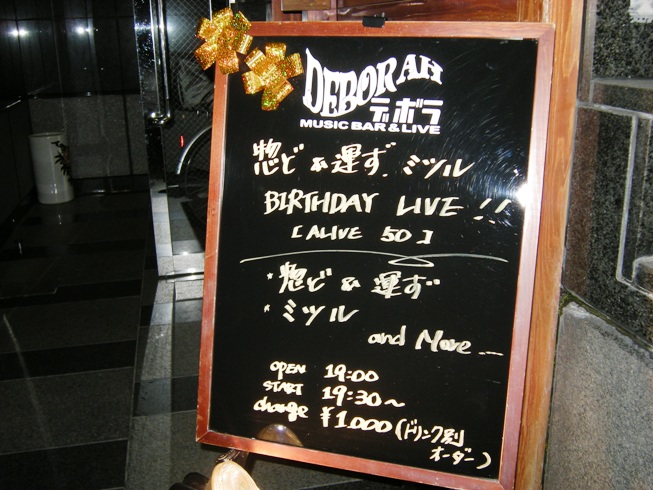 DEBORAH
デボラ
MUSIC BAR & LIVE
惣ど & 運ず. ミツル
BIRTHDAY LIVE!!
[ALIVE 50]
・惣ど & 運ず
・ミツル
and More...
OPEN 19:00
START 19:30~
charge ¥1.000(ドリンク別
オーダー)